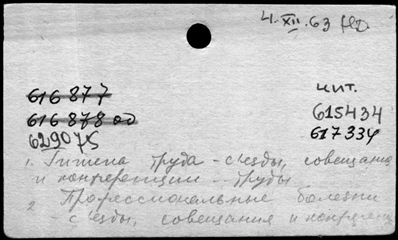 4.XII.63
616877
чит.
616878 ад
615434
629075
617334
1. Гигиена труда - съезды, совещания
и конференции - труды
2 Профессиональные болезни
- съезды, совещания и конференц